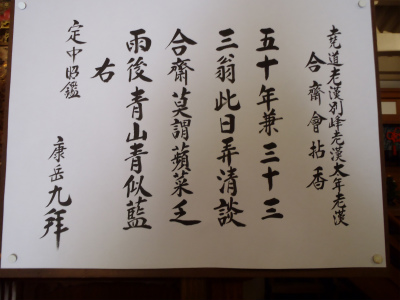 堯道老漢別峰老漢大年老漢
合齋會拈香
五十年兼三十三
三翁此日弄清談
合齋莫謂蘋菜乏
雨後青山青似藍
右
定中昭鑑
康岳九拜